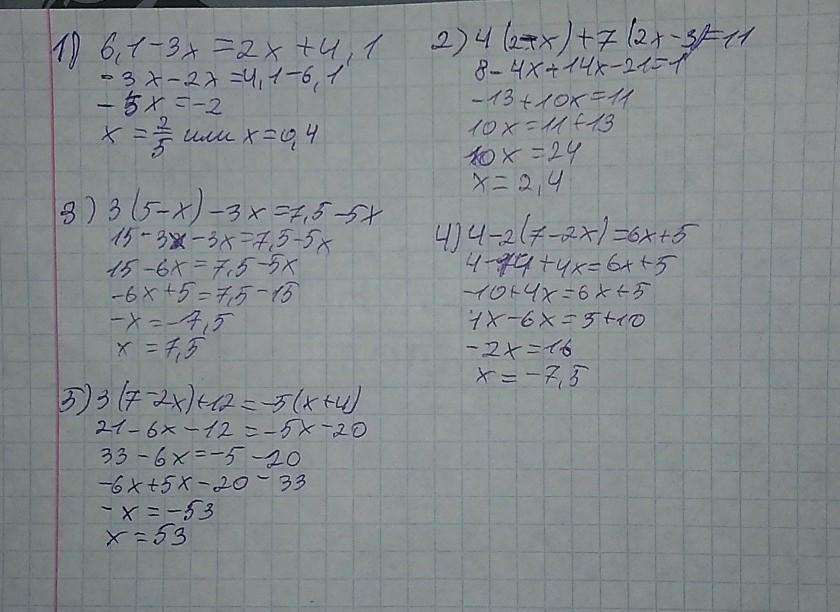 1) 6,1-3x=2x+4,1
-3x-2x=4,1-6,1
-5x=-2
x=2/5 или x=0,4
2) 4(2-x)+7(2x-3)=11
8-4x+14x-21=1
-13+10x=11
10x=11+13
10x=24
x=2,4
3) 3(5-x)-3x=7,5-5x
15-3x-3x=7,5-5x
15-6x=7,5-5x
-6x+5=7,5-15
-x=-7,5
x=7,5
4) 4-2(7-2x)=6x+5
4-14+4x=6x+5
-10+4x=6x+5
4x-6x=5+10
-2x=16
x=-7,5
5) 3(7-2x)+12=-5(x+4)
21-6x-12=-5x-20
33-6x=-5-20
-6x+5x-20-33
-x=-53
x=53